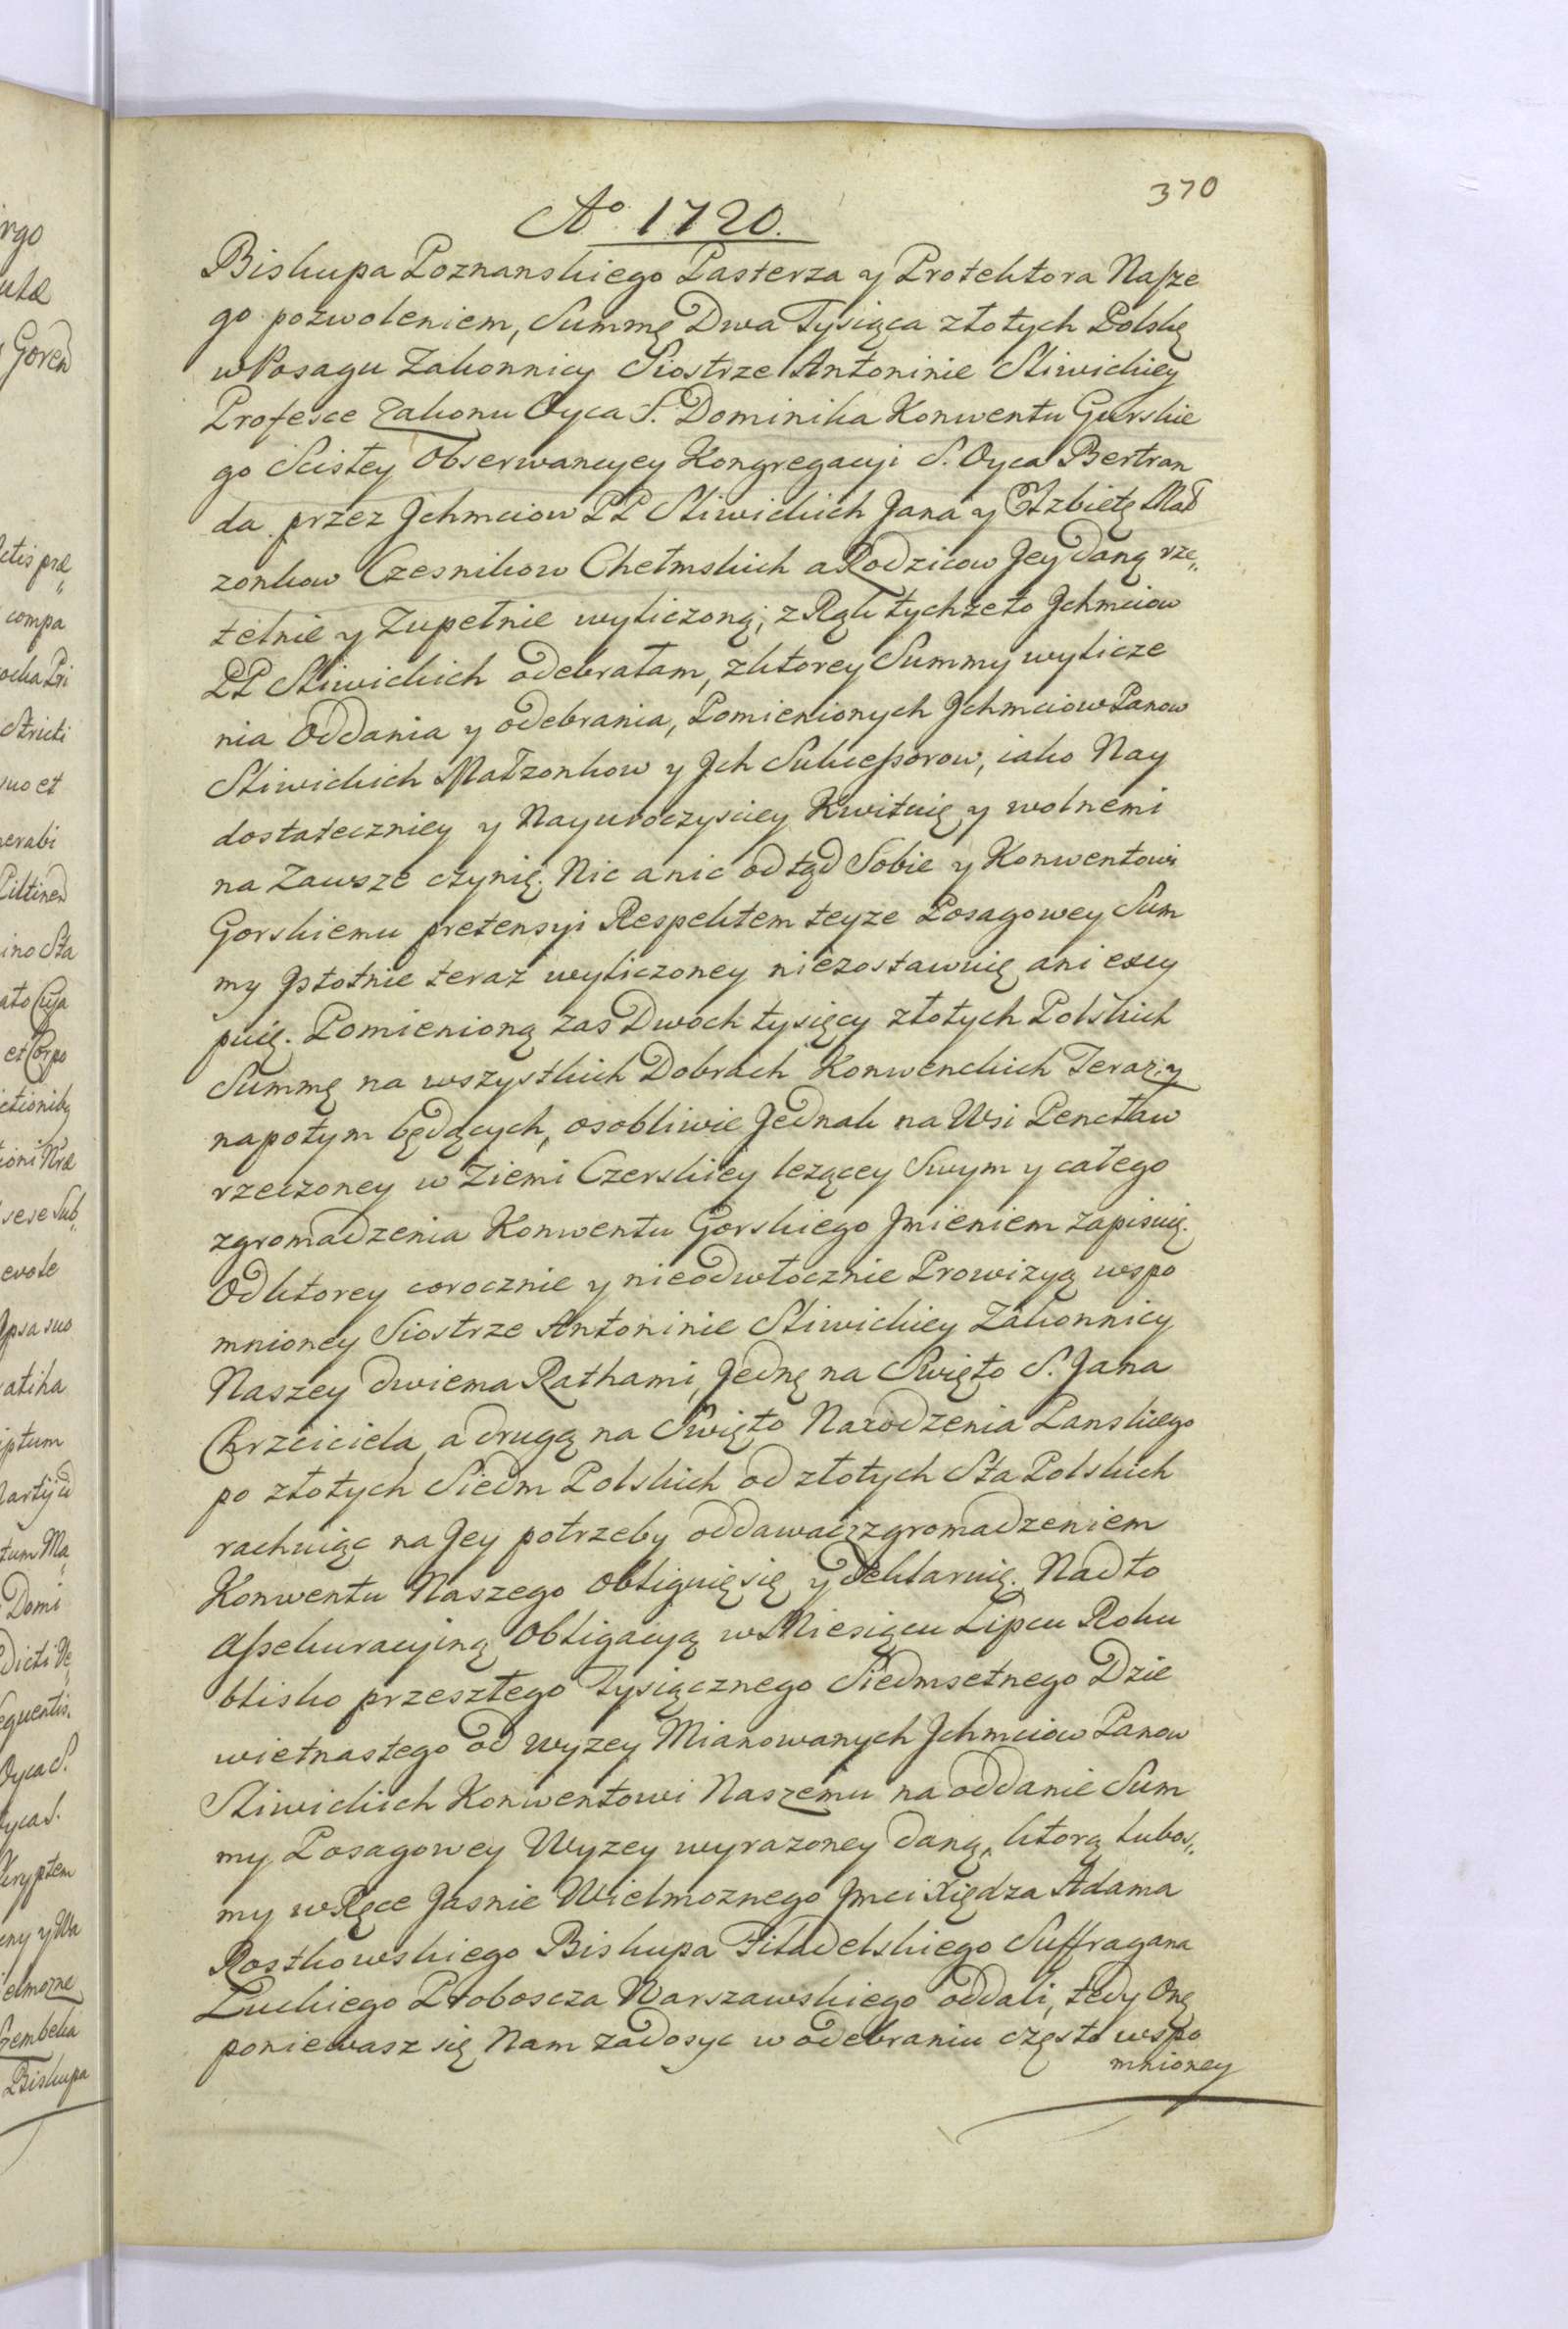 370
Aº 1720.
Biskupa Poznanskiego Pasterza y Protektora Nasze
go pozwoleniem, Summę Dwa Tysiąca złotych Polskę
w Posagu Zakonnicy Siostrze Antoninie Sliwickiey
Profesce Zakonu Oyca S. Dominika Konwentu Gurskie
go Scisłey Obserwancyey Kongregacyi S. Oyca Bertran
da przez Jchmciow PP Sliwickich Jana y Elzbietę Mał
zonkow Czesnikow Chełmskich a Rodzicow Jey daną rze„
telnie y Zupełnie wyliczoną; z Rąk tychzeto Jchmciow
PP Sliwickich odebrałam, zktorey Summy wylicze
nia Oddania y odebrania, Pomienionych Jchmciow Panow
Sliwickich Małzonkow y Jch Sukcessorow, iako Nay
dostateczniey y Nayuroczysciey Kwituię y wolnemi
na Zawsze czynię. Nic a nic odtąd Sobie y Konwentowi
Gorskiemu pretensyi Respektem teyze Posagowey Sum
my Jstotnie teraz wyliczoney niezostawuię ani excy
puię. Pomienioną zas Dwoch tysięcy złotych Polskich
Summę na wszystkich Dobrach Konwenckich Teraz y
napotym będących, osobliwie Jednak na Wsi Pencław
rzeczoney w Ziemi Czerskiey lezącey Swym y całego
zgromadzenia Konwentu Gorskiego Jmieniem zapisuię.
Odktorey corocznie y nieodwłocznie Prowizyą wspo
mnioney Siostrze Antoninie Sliwickiey Zakonnicy
Naszey dwiema Rathami, Jednę na Swięto S. Jana
Chrzciciela, a drugą na Swięto Narodzenia Panskiego
po złotych Siedm Polskich od złotych Sta Polskich
rachuiąc na Jey potrzeby oddawać zzgromadzeniem
Konwentu Naszego obliguięsię y deklaruię. Nadto
Assekuracyiną Obligacyą w Miesiącu Lipcu Roku
blisko przeszłego Tysiącznego Siedmsetnego Dzie
wietnastego od wyzey Mianowanych Jchmciow Panow
Sliwickich Konwentowi Naszemu na oddanie Sum
my Posagowey Wyzey wyrazoney daną, ktorą lubos„
my w Ręce Jasnie Wielmoznego Jmci Xiędza Adama
Rostkowskiego Biskupa Filadelskiego Suffragana
Łuckiego Proboscza Warszawskiego oddali, tedy Onę
poniewasz się Nam zadosyc w odebraniu często wspo
mnioney